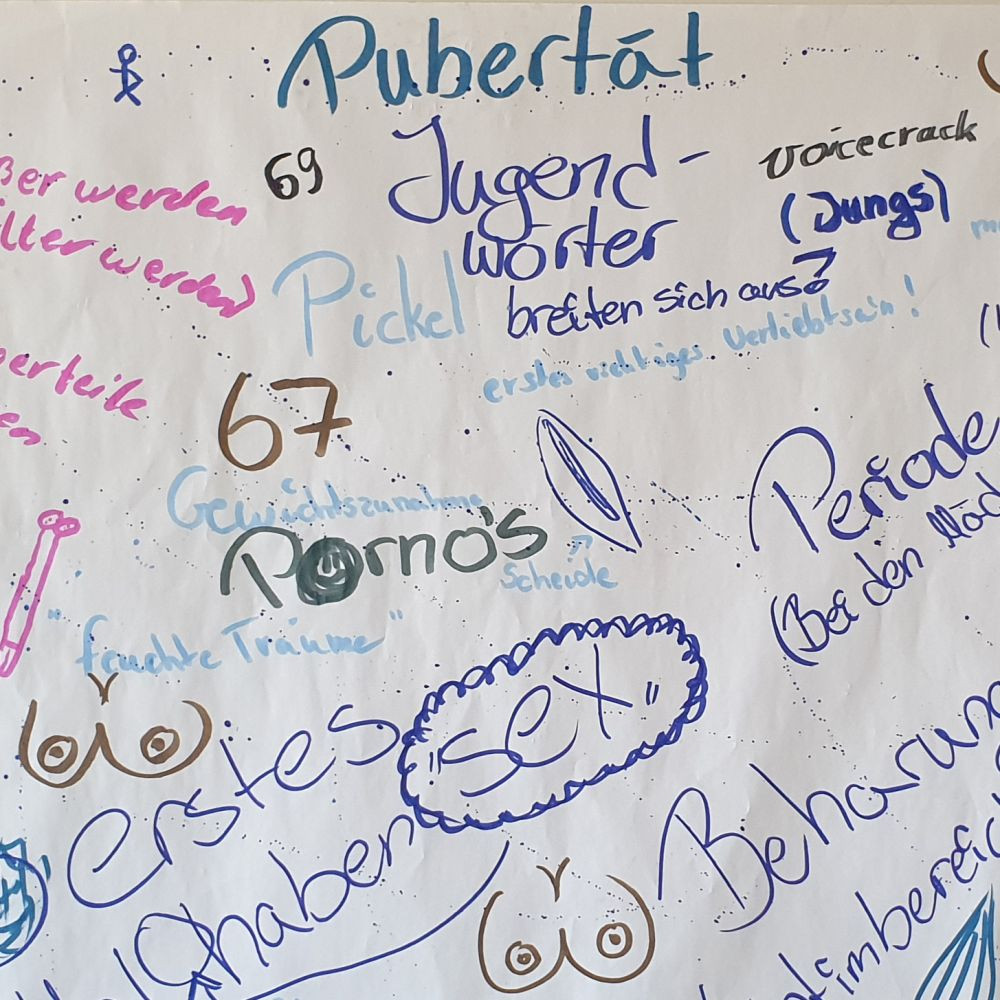 Pubertät
ßer werden
älter werden)
69
Jugend-
wörter
voicecrack
(Jungs)
Pickel
breiten sich aus?
erstes richtiges Verliebtsein!
perteile
en
67
Gewichtszunahme
Porno's
Scheide
"feuchte Träume"
Periode
(Bei den Mäd
erstes "sex"
haben
Beharun
ntimbereich